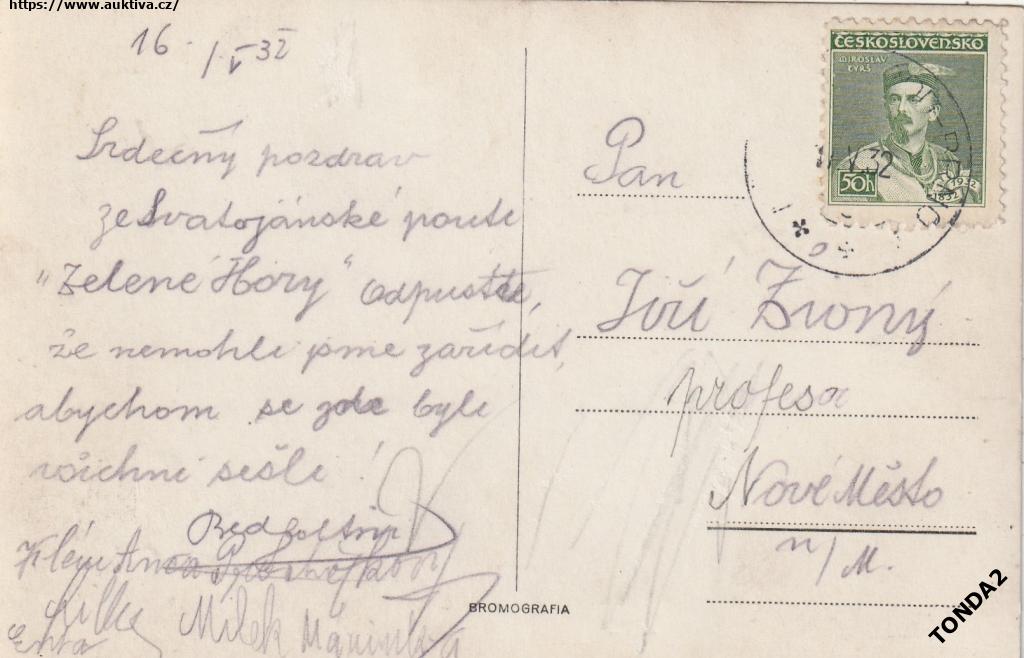 https://www.auktiva.cz/
16. /V 32
Srdečný pozdrav
ze Svatojánské pouti
"Zelené Hory" Odpusťte,
že nemohli jsme zařídit,
abychom se zde byli
všichni sešli!
Milek
ČESKOSLOVENSKO
MIROSLAV
TYRŠ
50h
1932
1832
V.32
Pan
Jiří
profesor
Nové Město
n/M.
BROMOGRAFIA
TONDA2